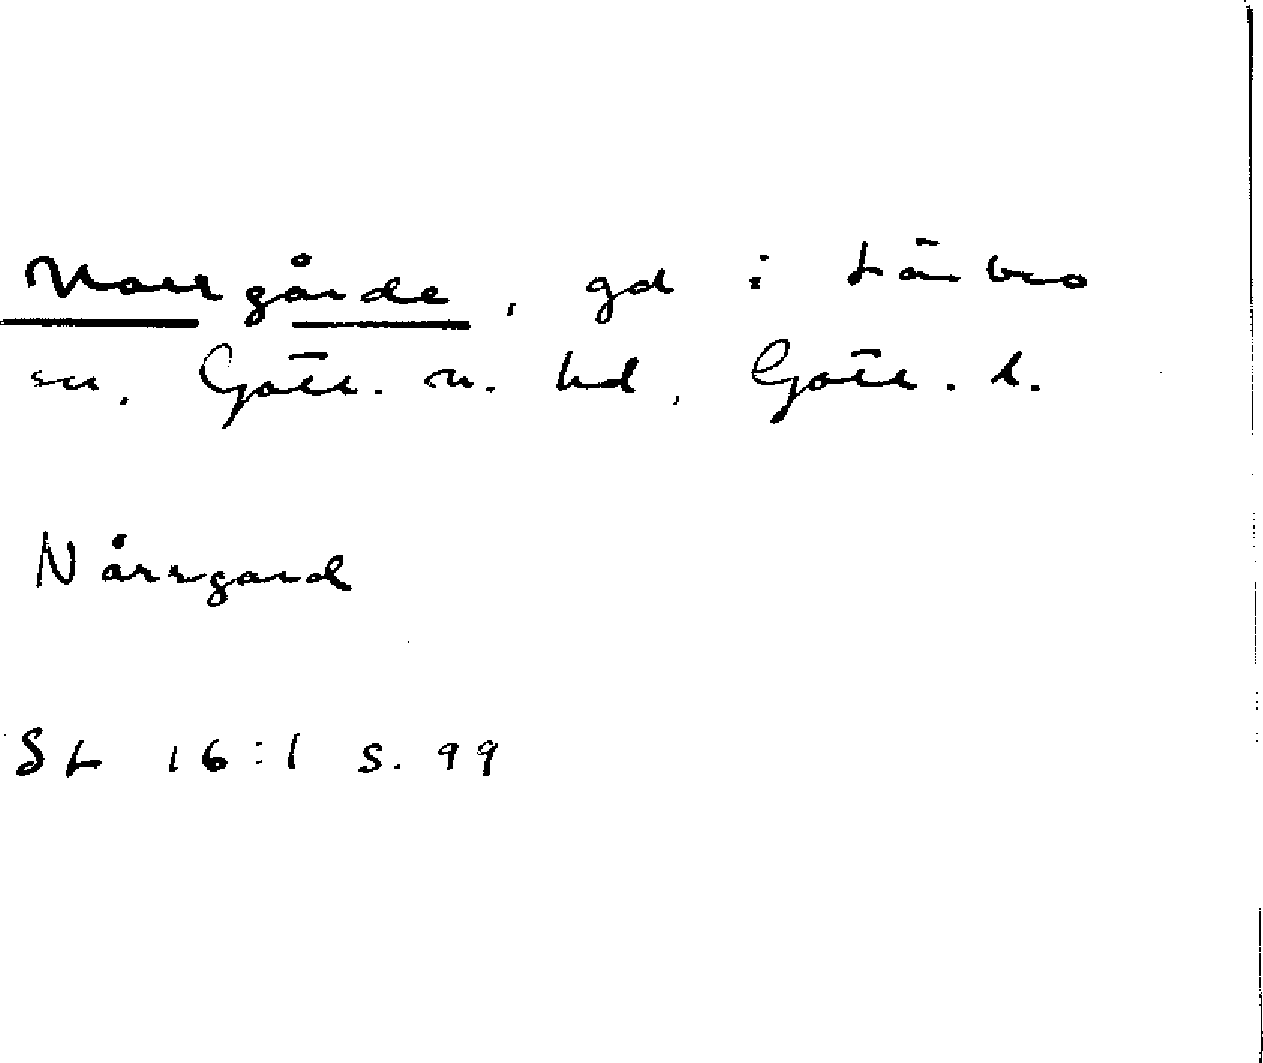 Norrgårde, gd i Lärbro
sn, Gotl. n. hd, Gotl. l.
Nårrgard
SL 16:1 s. 99